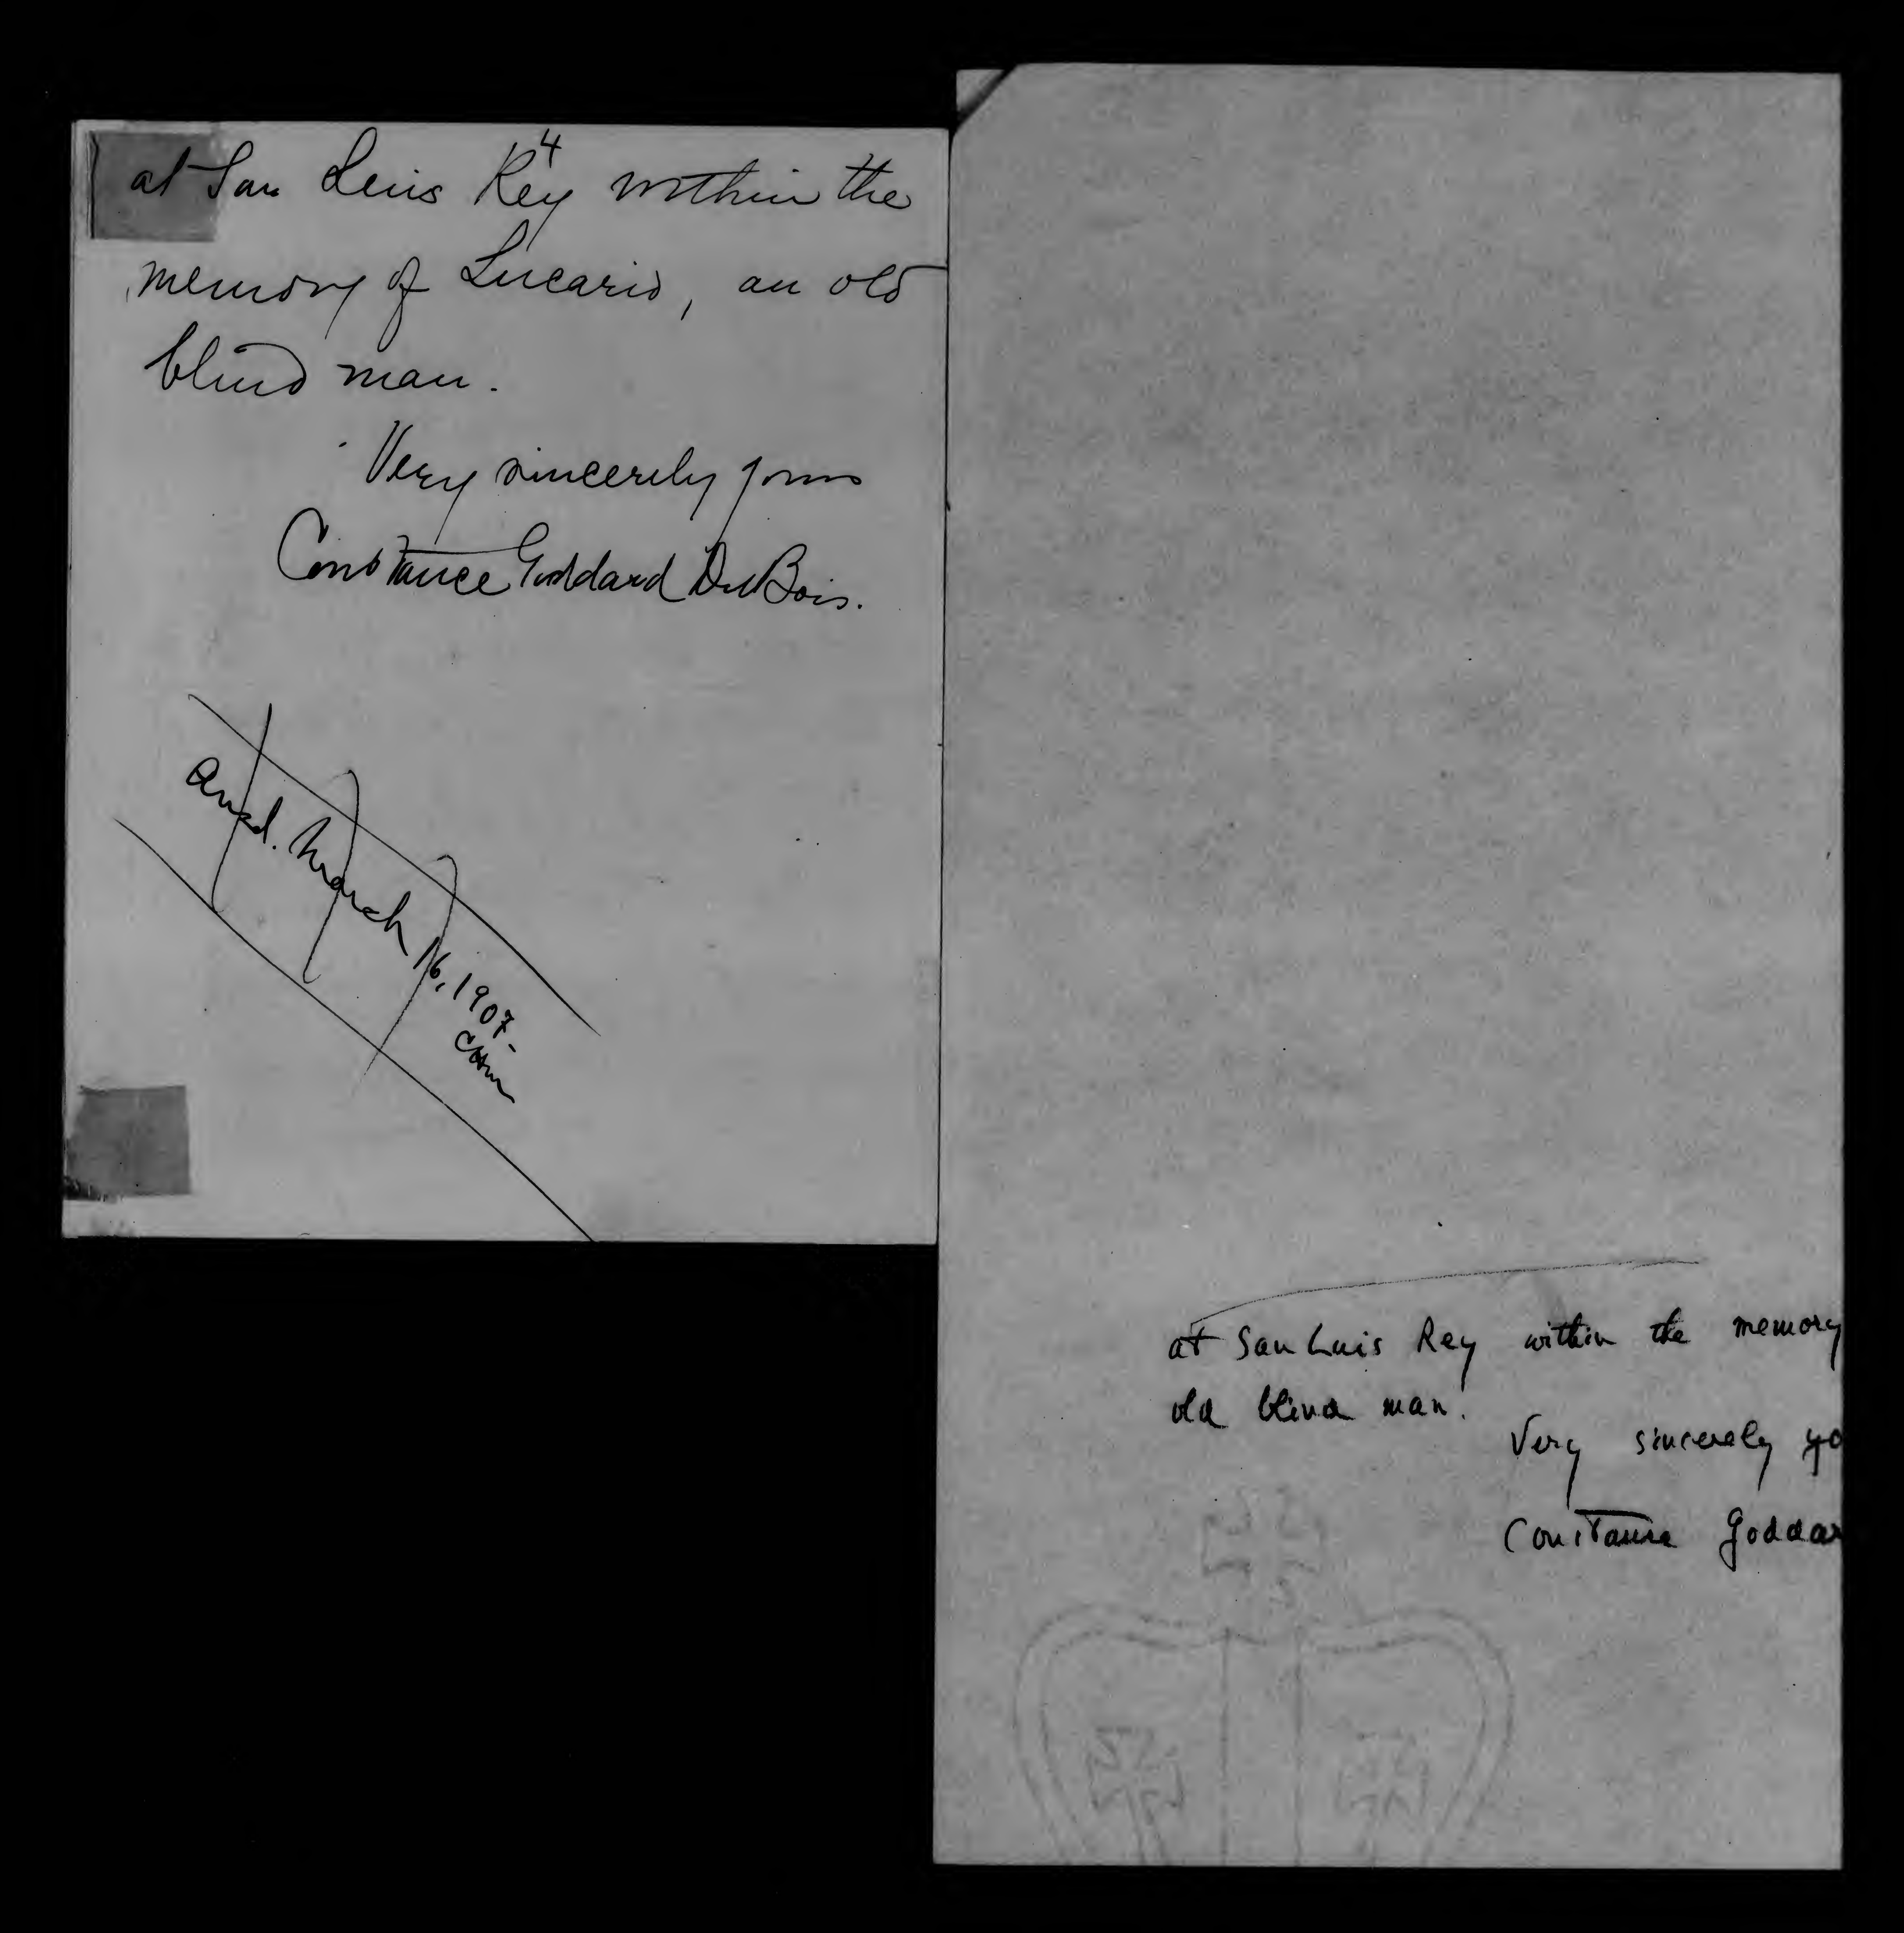 4
at San Luis Rey within the
memory of Lucario, an old
blind man.
Very sincerely yours
Constance Goddard DuBois.
Ansd. March 16, 1907-
CHM
at San Luis Rey within the memory
old blind man.
Very sincerely yo
Constance Goddar